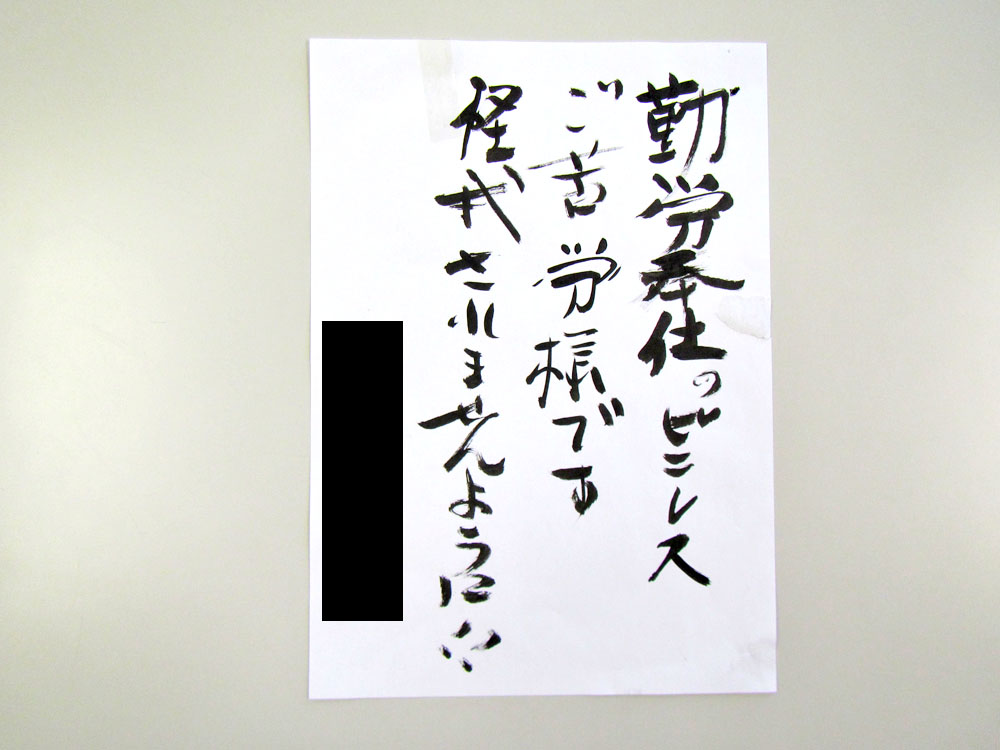 勤労奉仕のビニレス
ご苦労様です
怪我されませんように!!